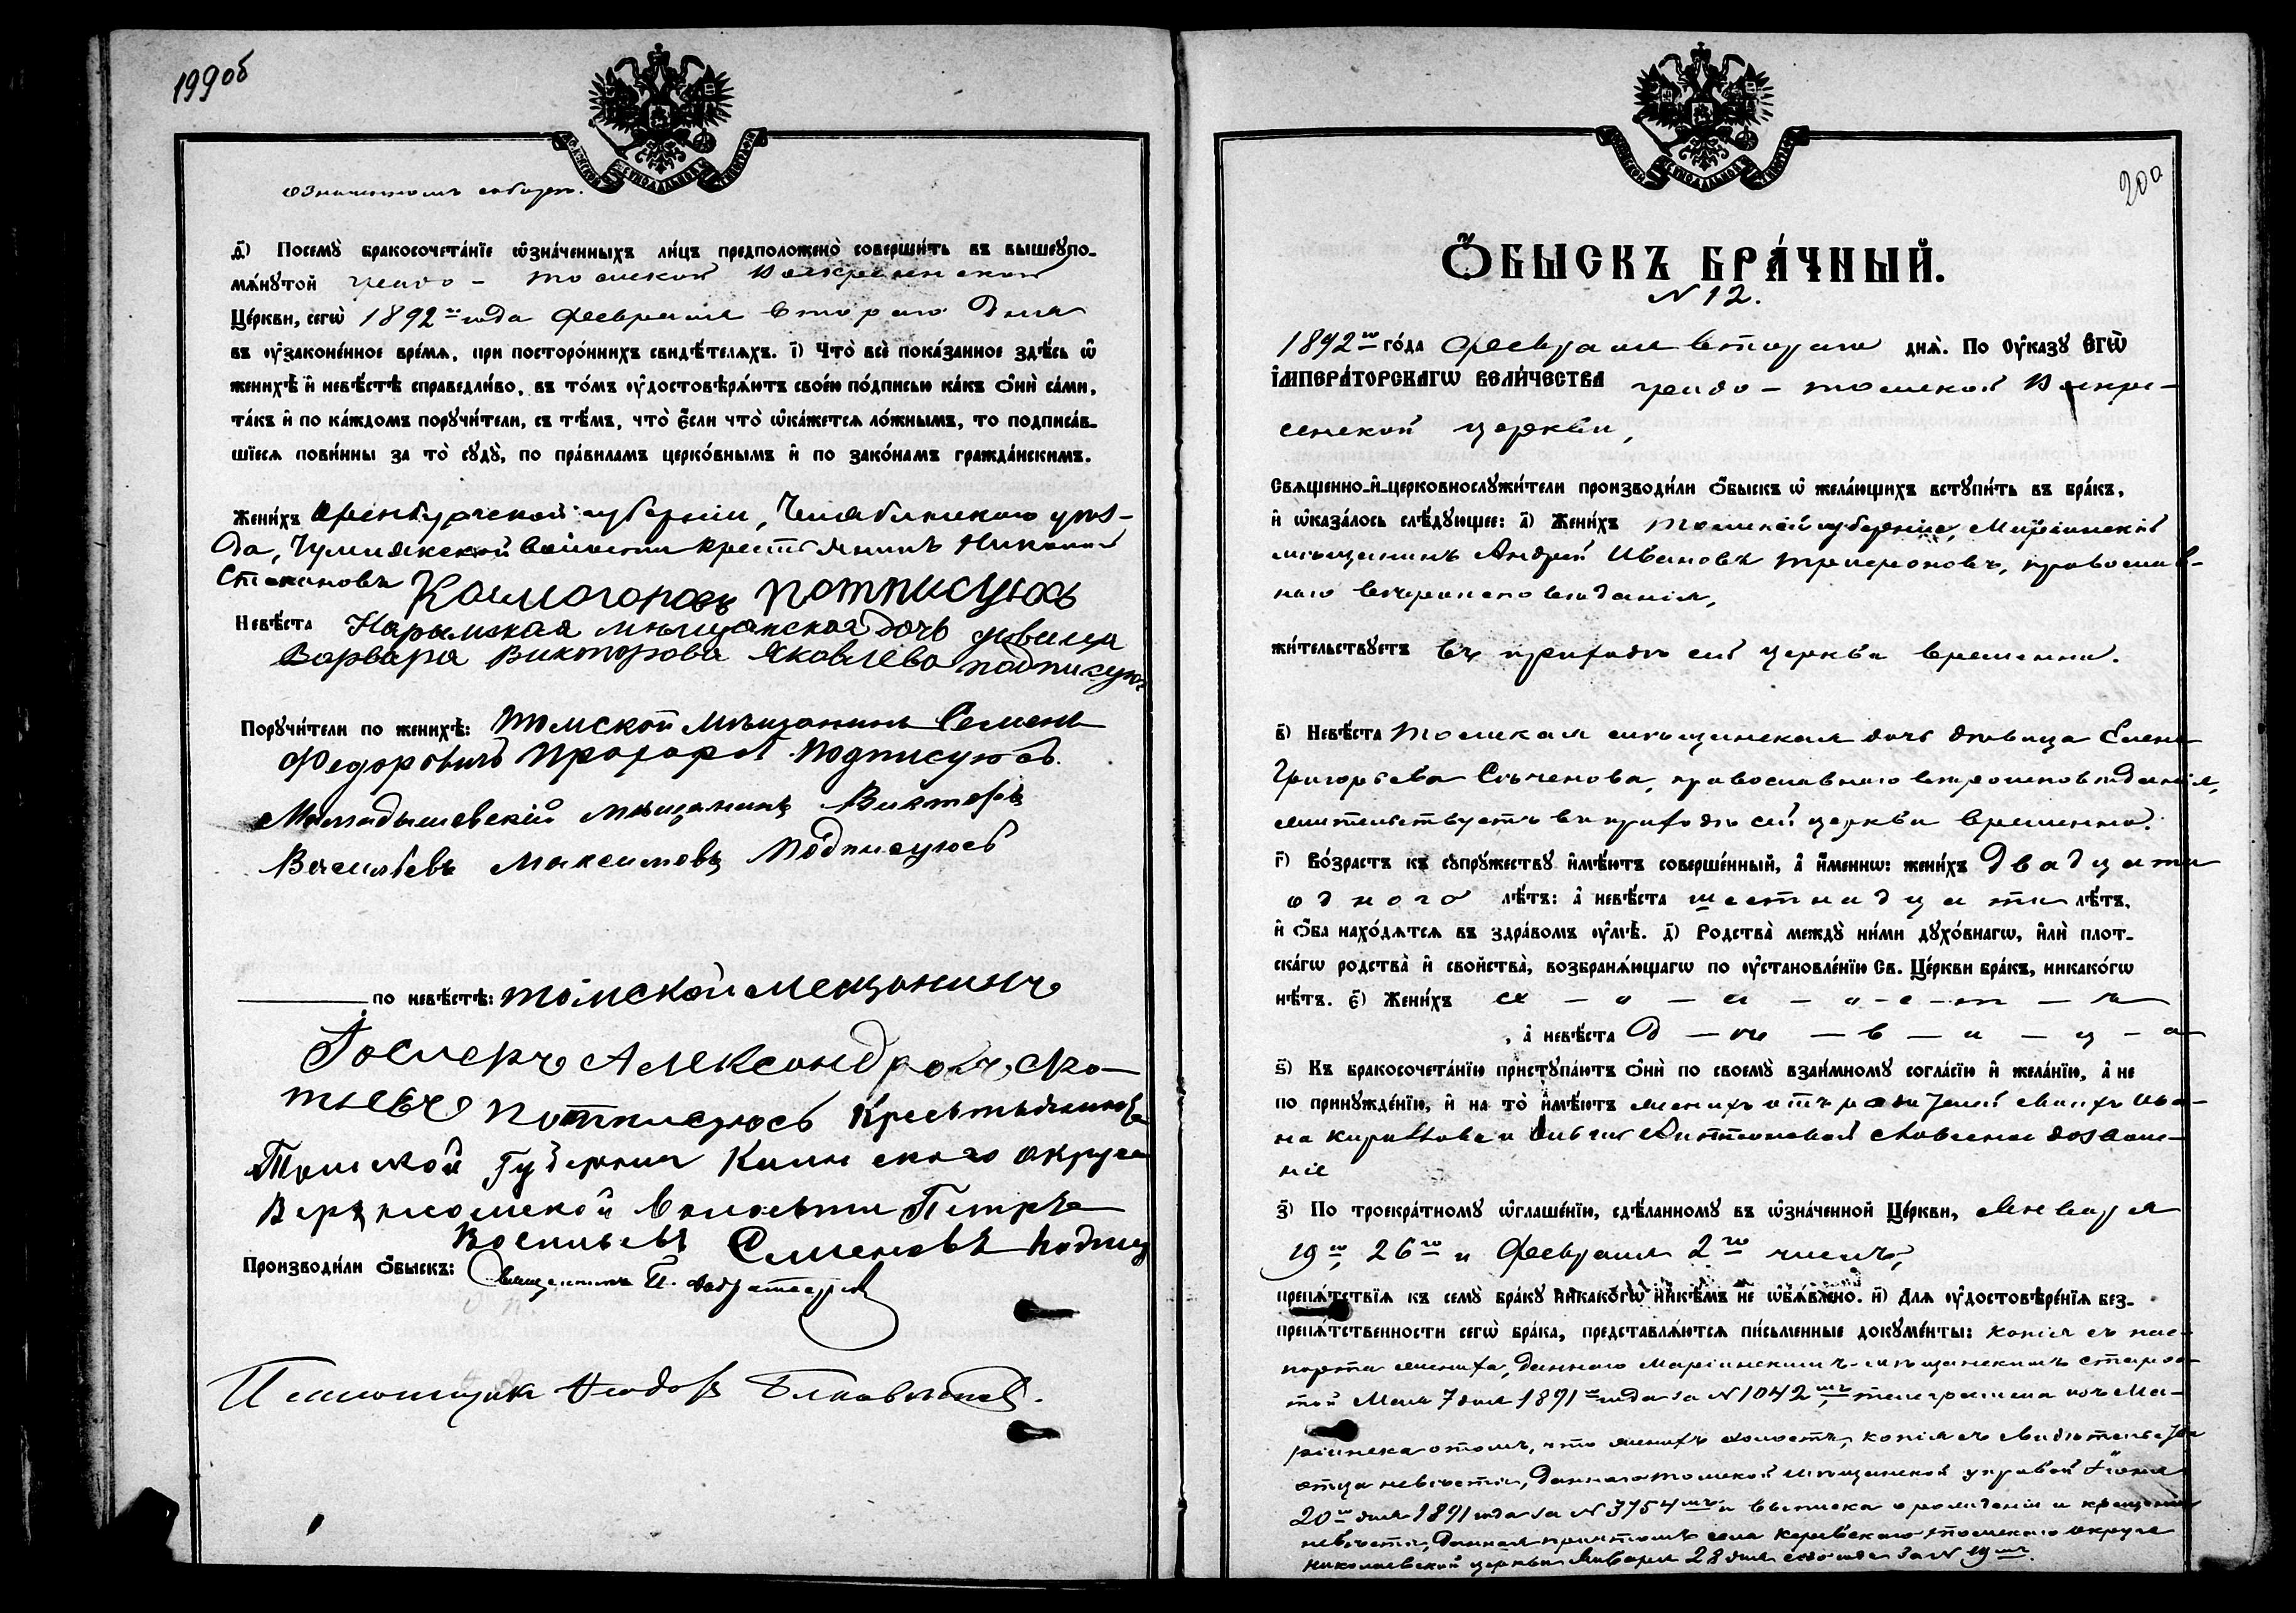 199об
означенномъ соборѣ.
д҃) Посему̀ бракосочета́нїе ѡ҆значенныхъ ли́цъ предположено̀ соверши́ть въ вышеупо-
мѧ́нутой градо - Томской Воскресенской
Це́ркви, сегѡ̀ 1892го года Февраля втораго дня
въ ᲂу҆законе́нное вре́мѧ, при посторо́ннихъ свидѣ́телѧхъ. і҃) Что̀ всѐ пока́занное здѣ́сь ѡ҆
женихѣ̀ и҆ невѣ́стѣ справедли́во, въ то́мъ ᲂу҆достовѣрѧ́ютъ свое́ю по́дписью ка́къ ѻ҆нѝ са́ми,
та́къ и҆ по ка́ждомъ поручи́тели, съ тѣ́мъ, что̀ є҆́сли что̀ ѡ҆ка́жетсѧ ло́жнымъ, то подписа́в-
шїесѧ пови́нны за то̀ суду̀, по пра́виламъ церко́внымъ и҆ по зако́намъ гражда́нскимъ.
Жени́хъ Оренбургской губерніи, Челябинскаго уѣз-
да, Чумлякской волости крестьянинъ Николай
Степановъ Колмогоровъ потписуюсь
Невѣ́ста Нарымская мѣщанская дочь дѣвица
Варвара Викторова Яковлева подписуюсь
Поручи́тели по женихѣ̀: Томской мѣщанинъ Семенъ
Федоровичъ подписуюсь.
мѣщанинъ Викторъ
Васильевъ Максимовъ подписуюсь
по невѣ́стѣ: томской мещанинъ
Александровъ Фо-
тѣевъ потписуюсь Крестьянинъ
Томской Губерніи Каинскаго округа
волости Петръ
Васильевъ Семеновъ подпис
Производи́ли ѻ҆́быскъ: Священникъ
Псаломщикъ
200
Ѻ҆́БЫСКЪ БРА́ЧНЫЙ.
N 12.
1892го го́да Февраля втораго днѧ̀. По Оу҆ка́зу ЕГѠ̀
І҆МПЕРА́ТОРСКАГѠ ВЕЛИ́ЧЕСТВА градо - томской Воскре-
сенской церкви,
Свѧщенно-и҆-церковнослужи́тели производи́ли ѻ҆́быскъ ѡ҆ жела́ющихъ вступи́ть въ бра́къ,
и҆ ѡ҆каза́лось слѣ́дующее: а҃) Жени́хъ Томской губерніи, Маріинскій
мѣщанинъ Андрей Ивановъ Трифоновъ, православ-
наго вѣроисповѣданія,
жи́тельствуетъ въ приходѣ сей церкви временно.
в҃) Невѣ́ста Томская мѣщанская дочь дѣвица Елена
Григорьева Сѣченова, православнаго вѣроисповѣданія,
жительствуетъ въ приходѣ сей церкви временно.
г҃) Во́зрастъ къ супру́жеству и҆мѣ́ютъ соверше́нный, а҆̀ и҆́менно: жени́хъ двадцати
одного лѣ́тъ: а҆̀ невѣ́ста шестнадцати лѣ́тъ,
и҆ ѻ҆́ба нахо́дѧтсѧ въ здра́вомъ ᲂу҆мѣ̀. д҃) Родства̀ ме́жду ни́ми духо́внагѡ, и҆лѝ плот-
ска́гѡ родства̀ и҆ сво́йства, возбранѧ́ющагѡ по ᲂу҆становле́нїю Св. Це́ркви бра́къ, никако́гѡ
нѣ́тъ. є҃) Жени́хъ х - о - л - о - с - т - ъ
, а҆̀ невѣ́ста д - ѣ - в - и - ц - а
ѕ҃) Къ бракосочета́нїю приступа́ютъ ѻ҆нѝ по своему̀ взаи́мному согла́сїю и҆ жела́нїю, а҆̀ не
по принужде́нїю, и҆ на то̀ и҆мѣ́ютъ женихъ отъ родителей своихъ Ива-
на Кирилова и словесное дозволе-
ніе
з҃) По троекра́тному ѡ҆глаше́нїю, сдѣ́ланному въ ѡ҆зна́ченной Це́ркви, Января
19го, 26го и Февраля 2го чиселъ,
препѧ́тствїѧ къ сему̀ бра́ку никако́гѡ нике́мъ не ѡ҆б̾ѧ́влено. и҃) Длѧ ᲂу҆достовѣре́нїѧ без-
препѧ́тственности сегѡ̀ бра́ка, представлѧ́ютсѧ пи́сьменные докуме́нты: копія съ пас-
порта жениха, даннаго Маріинскимъ мѣщанскимъ старос-
той Мая 7 дня 1891го года за N 1042мъ, телеграмма изъ Ма-
ріинска о томъ, что женихъ холостъ, копія съ свидѣтельства
отца невѣсты, даннаго томской мѣщанской управой Іюня
20го дня 1891 года за N 3754мъ и выписка о рожденіи и крещеніи
невѣсты, данная причтомъ села томскаго округа
Николаевской церкви Января 28 дня сего года за N 19мъ.